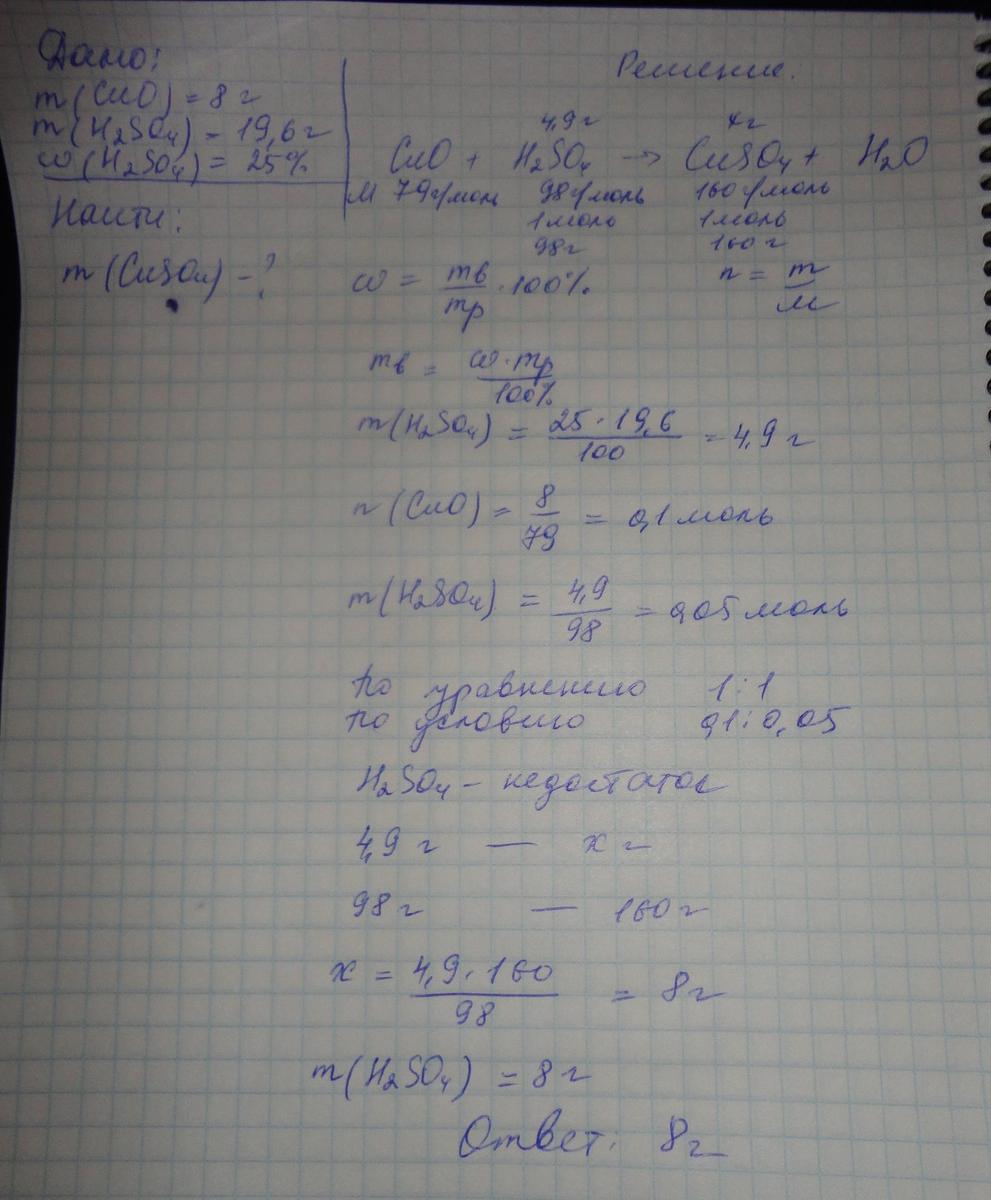 Дано:
m(CuO) = 8 г
m(H₂SO₄) = 19,6 г
ω(H₂SO₄) = 25%
Найти:
m(CuSO₄) - ?
Решение:
4,9 г xг
CuO + H₂SO₄ → CuSO₄ + H₂O
M 79г/моль 98г/моль 160г/моль
1моль 1моль
98г 160г
ω = mв/mр · 100% n = m/M
mв = ω·mр/100%
m(H₂SO₄) = 25·19,6/100 = 4,9 г
n(CuO) = 8/79 = 0,1 моль
m(H₂SO₄) = 4,9/98 = 0,05 моль
по уравнению 1:1
по условию 0,1:0,05
H₂SO₄ – недостаток
4,9 г — x г
98 г — 160 г
x = 4,9·160/98 = 8 г
m(H₂SO₄) = 8 г
Ответ: 8г